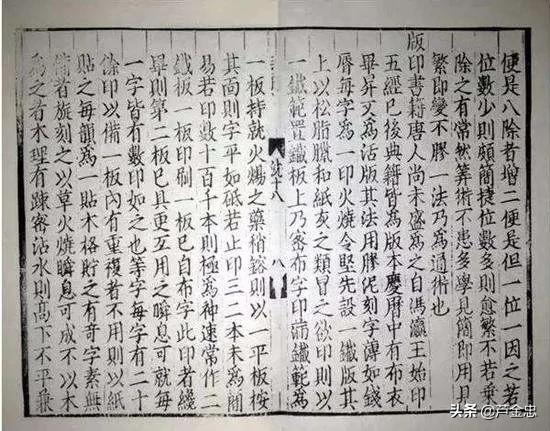 便是八除者增二便是但一位一因之若
位數少則頗簡捷位數多則愈繁不若乘
除之有常然筭術不患多學見簡即用見
繁即變不膠一法乃爲通術也
版印書籍唐人尚未盛爲之自馮瀛王始印
五經已後典籍皆爲版本慶曆中有布衣
畢昇又爲活版其法用膠泥刻字薄如錢
脣每字爲一印火燒令堅先設一鐵版其
上以松脂臘和紙灰之類冒之欲印則以
一鐵範置鐵板上乃密布字印滿鐵範爲
十八
八
一板持就火煬之藥稍鎔則以一平板按
其面則字平如砥若止印三二本未爲簡
易若印數十百千本則極爲神速常作二
鐵板一板印刷一板已自布字此印者纔
畢則第二板已具更互用之瞬息可就每
一字皆有數印如之也等字每字有二十
餘印以備一板內有重複者不用則以紙
貼之每韻爲一貼木格貯之有奇字素無
備者旋刻之以草火燒瞬息可成不以木
爲之者木理有踈密沾水則高下不平兼
头条 @芦金忠